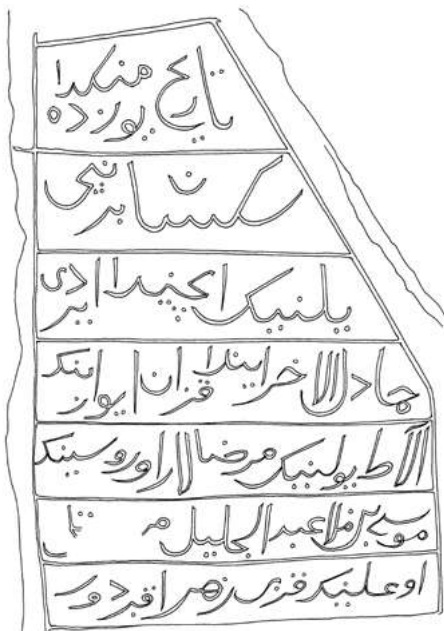 تاريخ منكدا يوزده
سكسان برنچی
يلنيك ايچندا ايردى
جماد الاخر ايندا قزان ايوازينك
آلاط يولينك مرضالار اوروسينك
موسى بن ملا عبد الجليل
اوغلينك قزى زهرا قبردور